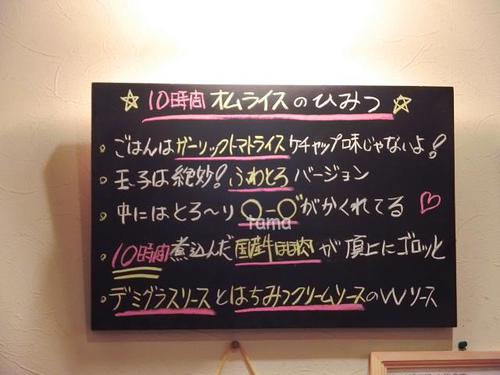 ☆10時間オムライスのひみつ☆
。ごはんはガーリックトマトライス ケチャップ味じゃないよ!
。玉子は絶妙!ふわとろバージョン
。中にはとろ〜り○-○"がかくれてる♡
tama
。10時間煮込んだ国産牛ほほ肉が頂上にゴロッと
。デミグラスソースとはちみつクリームソースのWソース